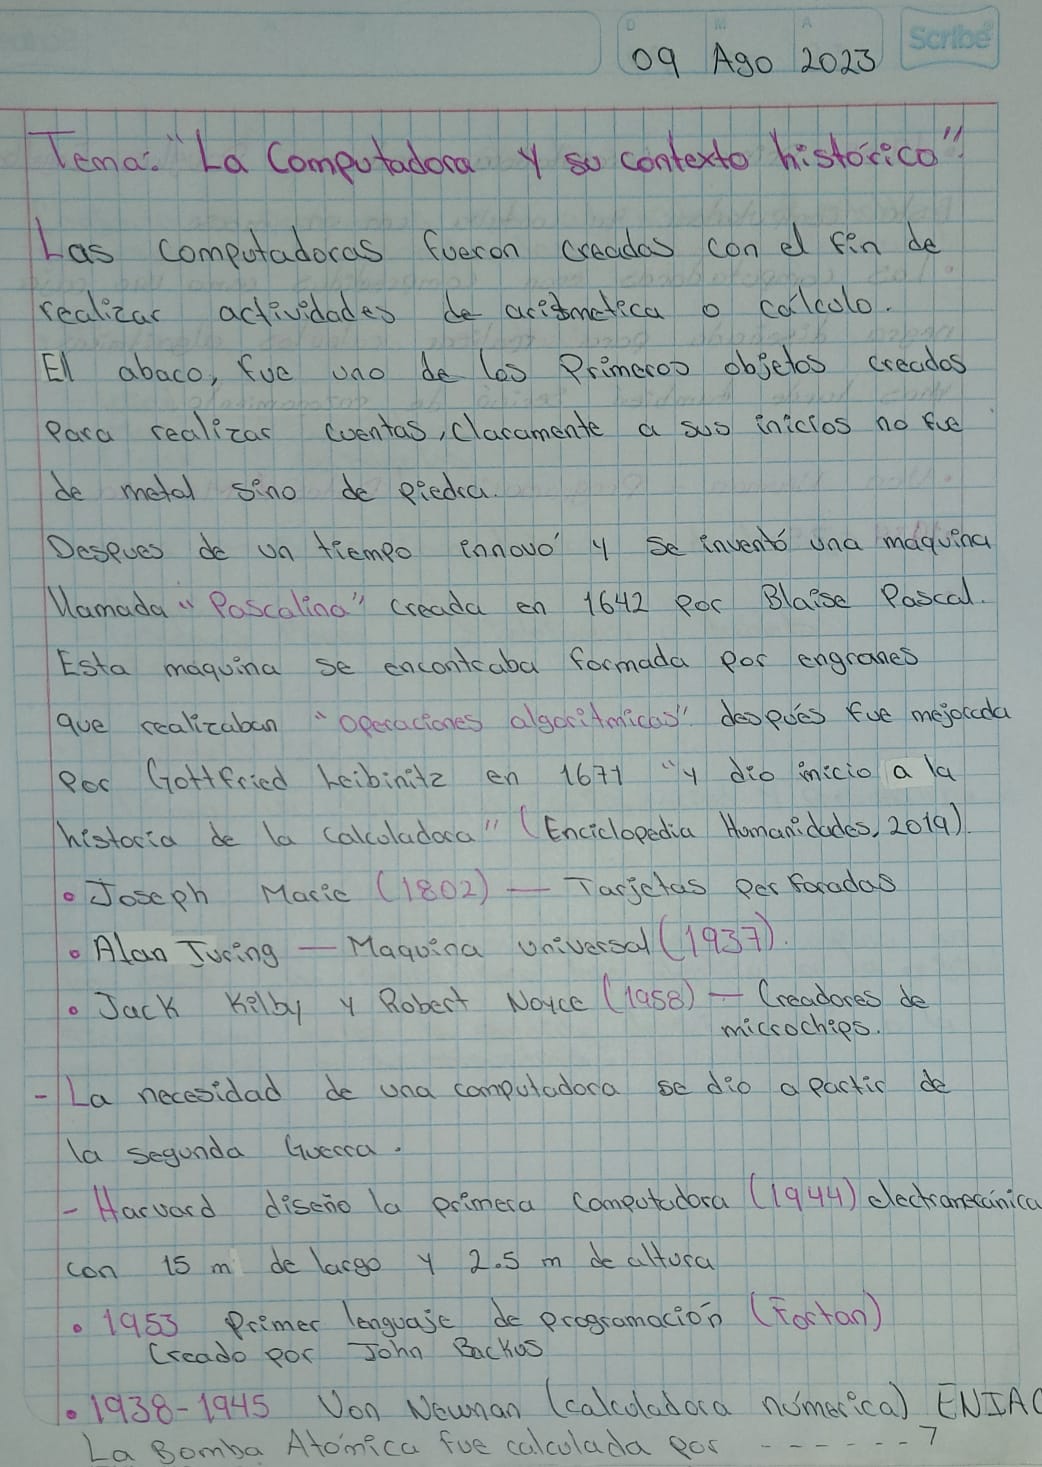 D M A
Scribe
09 Ago 2023
Tema: "La Computadora y su contexto histórico".
Las computadoras fueron creadas con el fin de
realizar actividades de aritmetica o cálculo.
El abaco, fue uno de los Primeros objetos creados
Para realizar cuentas, claramente a sus inicios no fue
de metal sino de piedra.
Despues de un tiempo innovó y se inventó una máquina
llamada "Pascalina" creada en 1642 por Blaise Pascal.
Esta máquina se encontraba formada por engranes
que realizaban "operaciones algoritmicas" después fue mejorada
por Gottfried Leibinitz en 1671 "y dio inicio a la
historia de la calculadora" (Enciclopedia Humanidades, 2019).
• Joseph Marie (1802) — Tarjetas perforadas
• Alan Turing — Maquina universal (1937).
• Jack Kilby y Robert Noyce (1958) — Creadores de
microchips.
- La necesidad de una computadora se dio a partir de
la segunda Guerra.
- Harvard diseño la primera computadora (1944) electramecánica
con 15 m de largo y 2.5 m de altura
• 1953 Primer lenguaje de programación (Fortan)
Creado por John Backus
• 1938-1945 Von Newman (calculadora númerica) ENIAC
La Bomba Atómica fue calculada por - - - - - - - 7